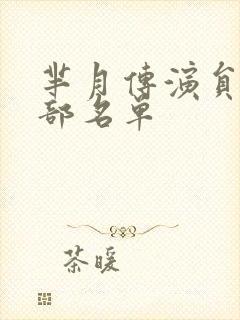 芈月傳演員
部名单
茶暖